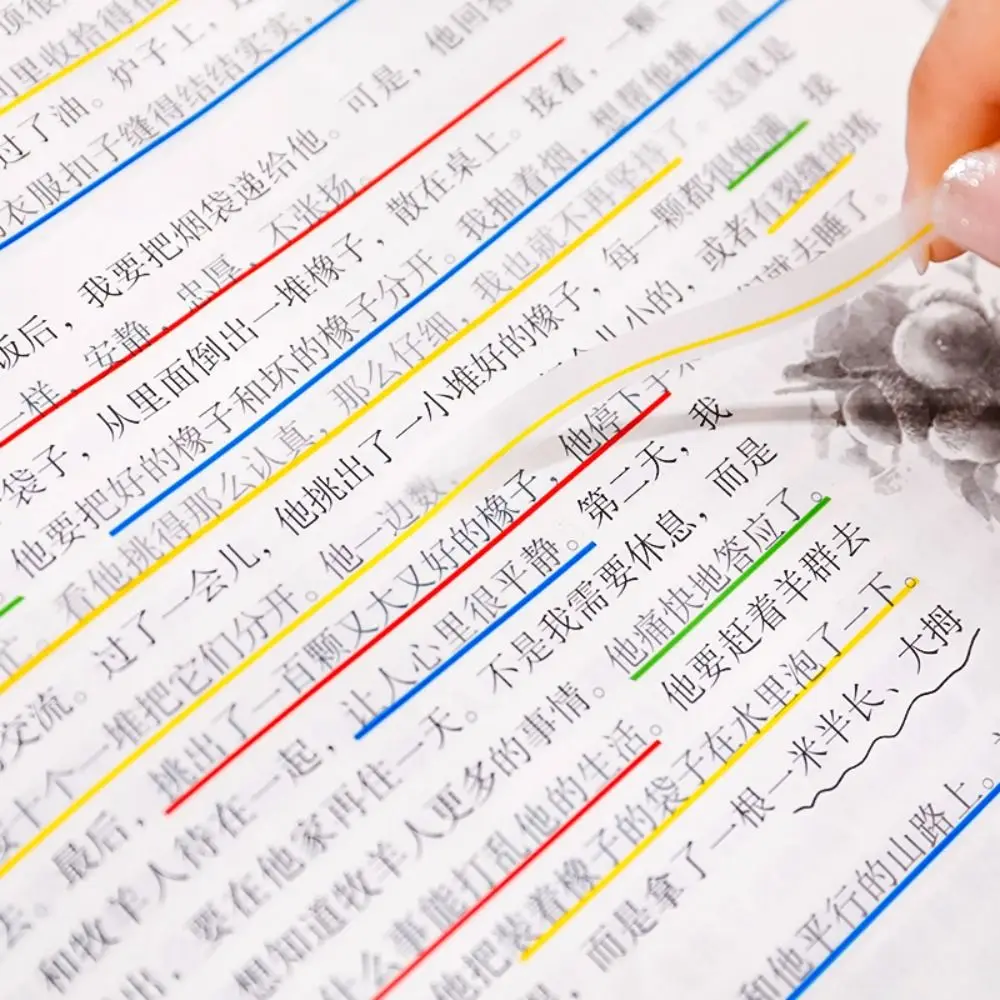 到里收拾得
过了油。炉子上,
衣服扣子缝得结结实实,
饭后,我要把烟袋递给他。可是,他回答
一样,安静,忠厚,不张扬。
袋子,从里面倒出一堆橡子,散在桌上。接着,一颗一
他要把好的橡子和坏的橡子分开。我抽着烟,想帮他挑,但
看他挑得那么认真,那么仔细,我也就不再坚持了 这就是
交流。过了一会儿,他挑出了一小堆好的橡子,每一颗都很饱满 接
十个一堆把它们分开。他一边数, 小的,或者有裂缝的拣
最后,挑出了一百颗又大又好的橡子,他停下 就去睡了。
和牧羊人待在一起,让人心里很平静。第二天,我
要在他家再住一天。不是我需要休息,而是
想知道牧羊人更多的事情。他痛快地答应了。
什么事能打乱他的生活。他要赶着羊群去
他把装着橡子的袋子在水里泡了一下。
而是拿了一根一米半长、大拇
和他平行的山路上。